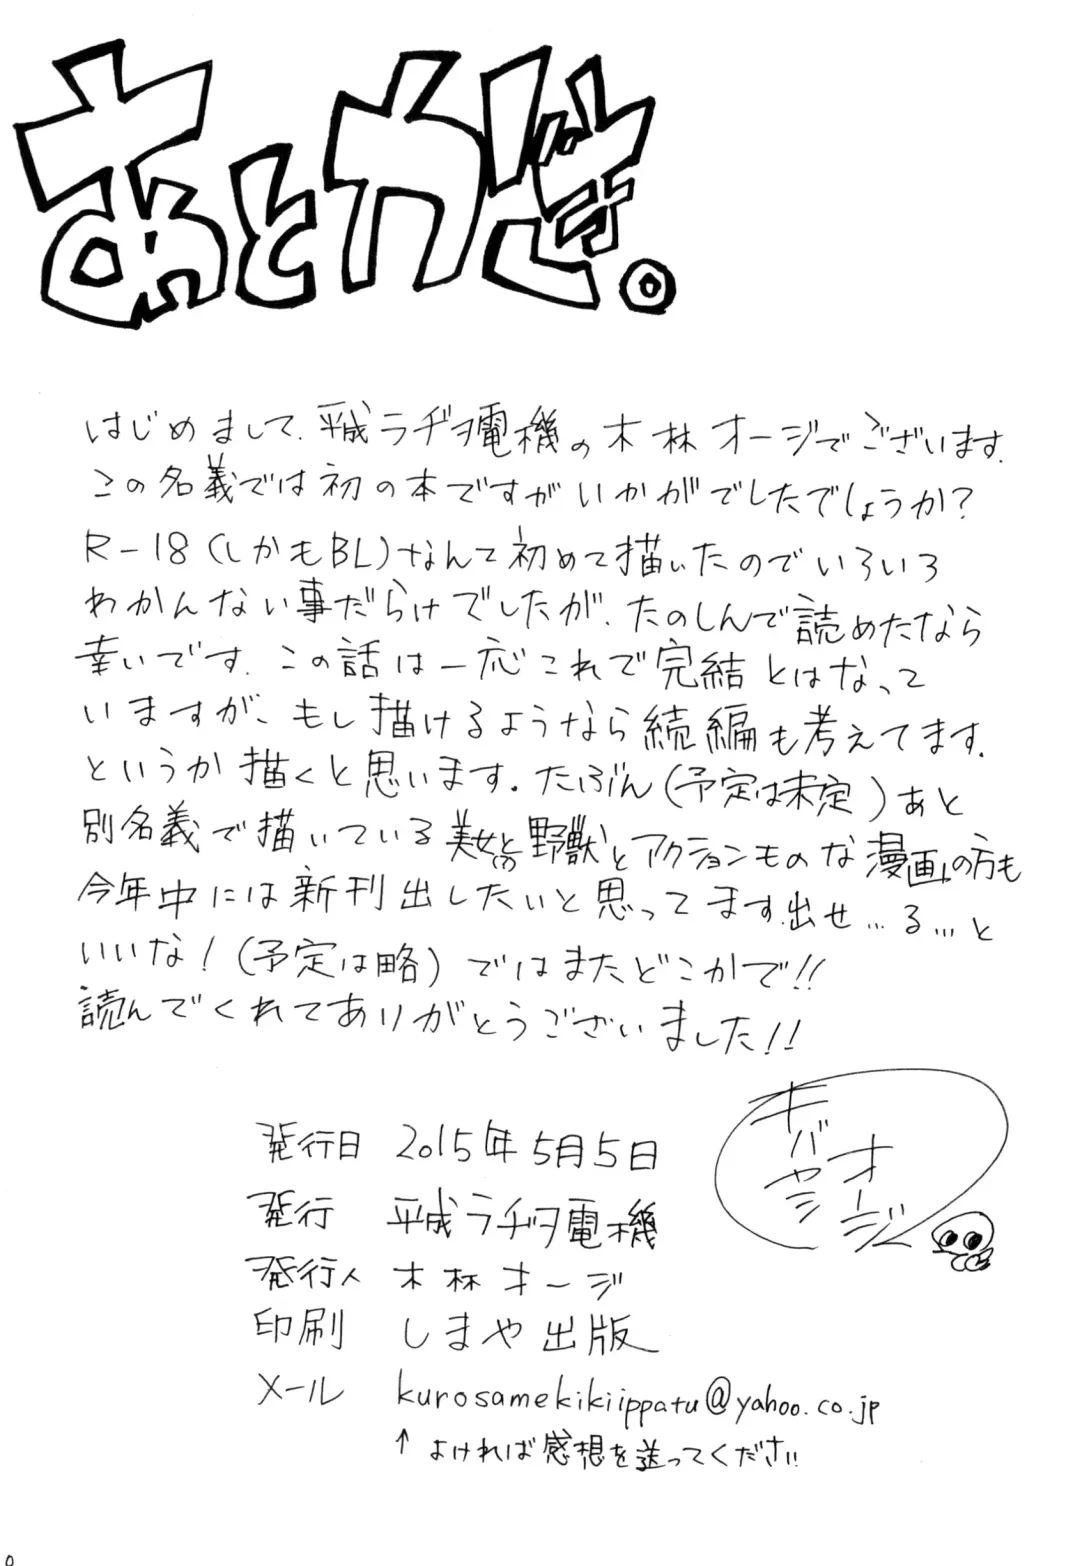 あとがき。
はじめまして、平成ラヂヲ電機の木林オージでございます。
この名義では初の本ですがいかがでしたでしょうか?
R-18(しかもBL)なんて初めて描いたのでいろいろ
わかんない事だらけでしたが、たのしんで読めたなら
幸いです。この話は一応これで完結とはなって
いますが、もし描けるようなら続編も考えてます。
というか描くと思います。たぶん(予定は未定)あと
別名義で描いている美女と野獣とアクションものな漫画の方も
今年中には新刊出したいと思ってます。出せ…る…と
いいな!(予定は略)ではまたどこかで!!
読んでくれてありがとうございました!!
キバヤシ
オージ
発行日 2015年5月5日
発行 平成ラヂヲ電機
発行人 木林オージ
印刷 しまや出版
メール kurosamekikiippatu@yahoo.co.jp
↑よければ感想を送ってください!